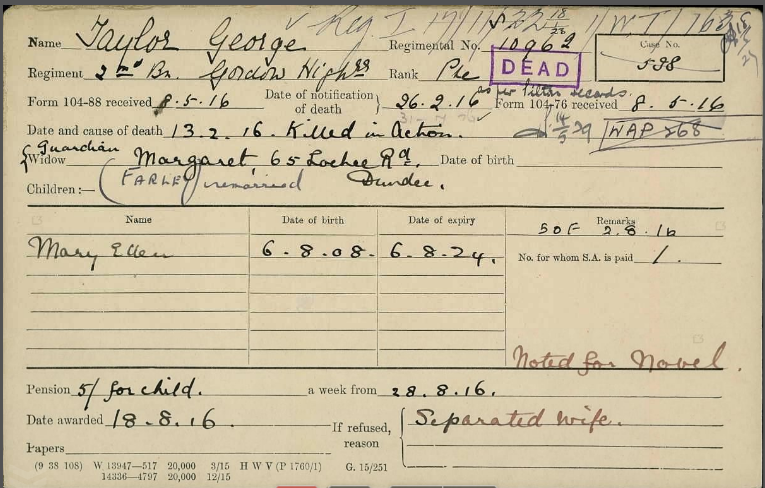 Reg. I
Name Taylor George Regimental No. 10962 Case No.
538
Regiment 2nd Bn. Gordon Highrs Rank Pte DEAD
as per Pltn records.
Form 104-88 received 8.5.16 Date of notification of death } 26.2.16 Form 104-76 received 8.5.16
Date and cause of death 13.2.16. Killed in Action. 14/5/29 WAP 268
& Guardian
Widow Margaret, 65 Lochee Rd. Date of birth
Children:— (FARLEY) remarried Dundee.
Name Date of birth Date of expiry Remarks
SOF 2.8.16
Mary Ellen 6-8-08- 6-8-24. No. for whom S.A. is paid 1.
Noted for Novel.
Pension 5/ for child. a week from 28.8.16.
Date awarded 18-8.16. If refused, reason { Separated wife.
Papers
(9 38 108) W 13947—517 20,000 3/15 H W V (P 1760/1) G. 15/251
14336—4797 20,000 12/15